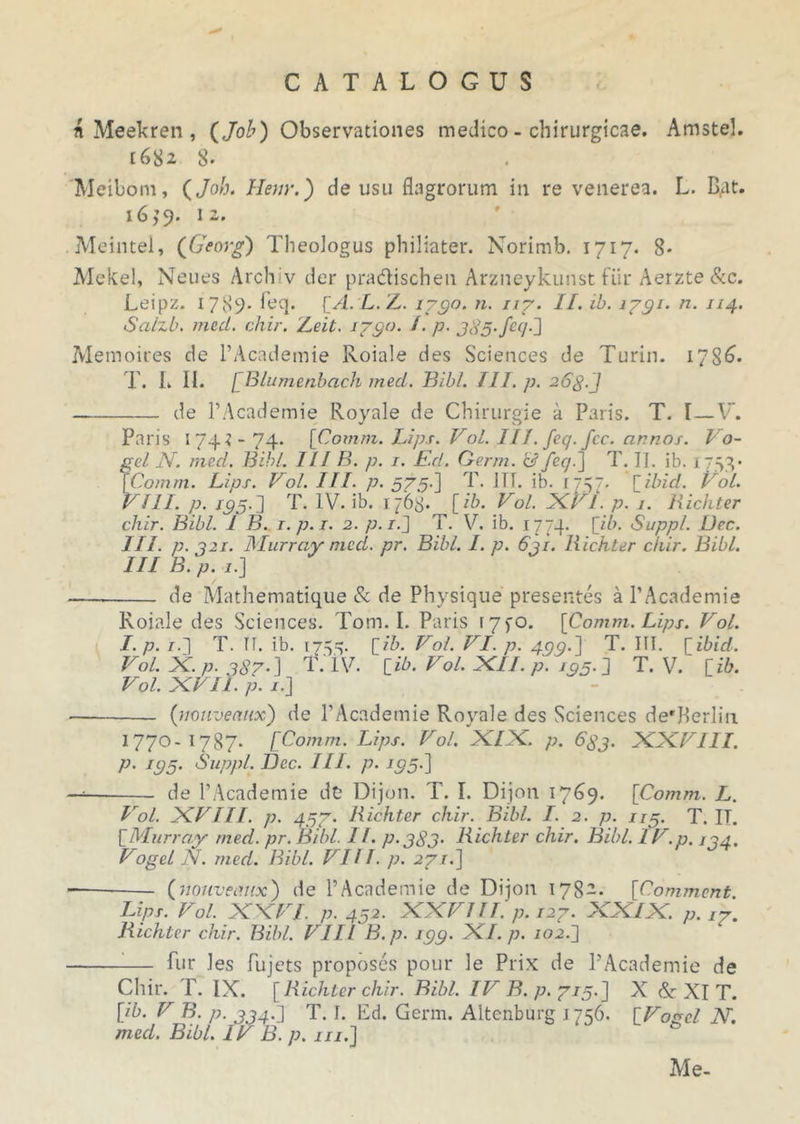 CATALOGUS
à Meekren, (Job) Observationes medico-chirurgicae. Amstel.
1682 8.
Meibom, (Joh. Henr.) de usu flagrorum in re venerea. L. Bat.
1659. 12.
Meintel, (Georg) Theologus philiater. Norimb. 1717. 8.
Mekel, Neues Archiv der practischen Arzneykunst für Aerzte &c.
Leipz. 1789. seq. [A. L. Z. 1790. n. 117. II. ib. 1791. n. 114.
Salzb. med. chir. Zeit. 1790. I. p. 385. seq.]
Memoires de l'Academie Roiale des Sciences de Turin. 1786.
T. I. II. [Blumenbach med. Bibl. III. p. 268.]
——— de l'Academie Royale de Chirurgie à Paris. T. I—V.
Paris 1743-74. [Comm. Lips. Vol. III. seq. sec. annos. Vo-
gel N. med. Bibl. III B. p. 1. Ed. Germ. & seq.] T. II. ib. 1753.
[Comm. Lips. Vol. III. p. 575.] T. III. ib. 1757. [ibid. Vol.
VIII. p. 195.] T. IV. ib. 1768. [ib. Vol. XVI. p. 1. Richter
chir. Bibl. I B. 1. p. 1. 2. p. 1.] T. V. ib. 1774. [ib. Suppl. Dec.
III. p. 321. Murray med. pr. Bibl. I. p. 631. Richter chir. Bibl.
III B. p. 1.]
——— de Mathematique & de Physique presentés à l'Academie
Roiale des Sciences. Tom. I. Paris 1750. [Comm. Lips. Vol.
I. p. 1.] T. II. ib. 1755. [ib. Vol. VI. p. 499.] T. III. [ibid.
Vol. X. p. 387.] T. IV. [ib. Vol. XII. p. 195.] T. V. [ib.
Vol. XVII. p. 1.]
——— (nouveaux) de l'Academie Royale des Sciences de Berlin
1770-1787. [Comm. Lips. Vol. XIX. p. 683. XXVIII.
p. 195. Suppl. Dec. III. p. 195.]
——— de l'Academie de Dijon. T. I. Dijon 1769. [Comm. L.
Vol. XVIII. p. 457. Richter chir. Bibl. I. 2. p. 115. T. II.
[Murray med. pr. Bibl. II. p. 383. Richter chir. Bibl. IV. p. 134.
Vogel N. med. Bibl. VIII. p. 271.]
——— (nouveaux) de l'Academie de Dijon 1782. [Comment.
Lips. Vol. XXVI. p. 452. XXVIII. p. 127. XXIX. p. 17.
Richter chir. Bibl. VIII B. p. 199. XI. p. 102.]
——— sur les sujets proposés pour le Prix de l'Academie de
Chir. T. IX. [Richter chir. Bibl. IV B. p. 715.] X & XI T.
[ib. V B. p. 334.] T. I. Ed. Germ. Altenburg 1756. [Vogel N.
med. Bibl. IV B. p. 111.]
Me-